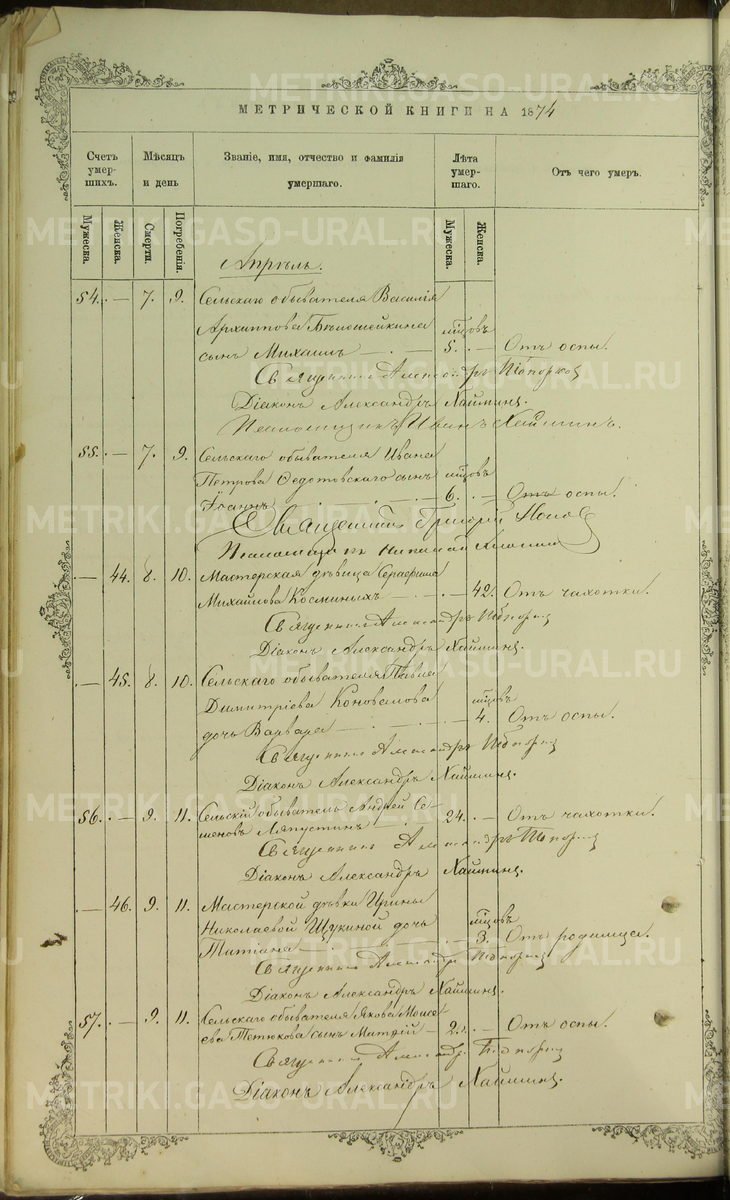 METRIKI.GASO-URAL.RU
МЕТРИЧЕСКОЙ КНИГИ НА 1874
Счетъ умершихъ. Мѣсяцъ и день Званіе, имя, отчество и фамилія умершаго. Лѣта умершаго. Отъ чего умеръ.
Мужеска. Женска. Смерти. Погребенія. Мужеска. Женска.
Апрѣль.
54. — 7. 9. Сельскаго обывателя Василія
Архиппова Бѣлошейкина мѣцовъ
сынъ Михаилъ — 5. — Отъ оспы.
Священникъ Александръ
Діаконъ Александръ Хайминъ.
Псаломщикъ Иванъ Хайминъ.
55. — 7. 9. Сельскаго обывателя Ивана
Петрова Федотовскаго сынъ мѣцовъ
Іоаннъ 6. — Отъ оспы.
Священникъ Григорій Поповъ
Псаломщикъ Николай
— 44. 8. 10. Мастерская дѣвица Серафима
Михайлова Косминыхъ — 42. Отъ чахотки.
Священникъ Александръ
Діаконъ Александръ Хайминъ.
— 45. 8. 10. Сельскаго обывателя Павла
Димитріева Коновалова мѣцовъ
дочь Варвара — 4. Отъ оспы.
Священникъ Александръ
Діаконъ Александръ Хайминъ.
56. — 9. 11. Сельскій обыватель Андрей Се-
меновъ Ляпустинъ — 24. — Отъ чахотки.
Священникъ Александръ
Діаконъ Александръ Хайминъ.
— 46. 9. 11. Мастерской дѣвки Ирины
Николаевой Щукиной дочь мѣцовъ
Татіана — 3. Отъ родимца.
Священникъ Александръ
Діаконъ Александръ Хайминъ.
57. — 9. 11. Сельскаго обывателя Якова Моисе-
ева Тетюкова сынъ Матфей — 2. — Отъ оспы.
Священникъ Александръ
Діаконъ Александръ Хайминъ.